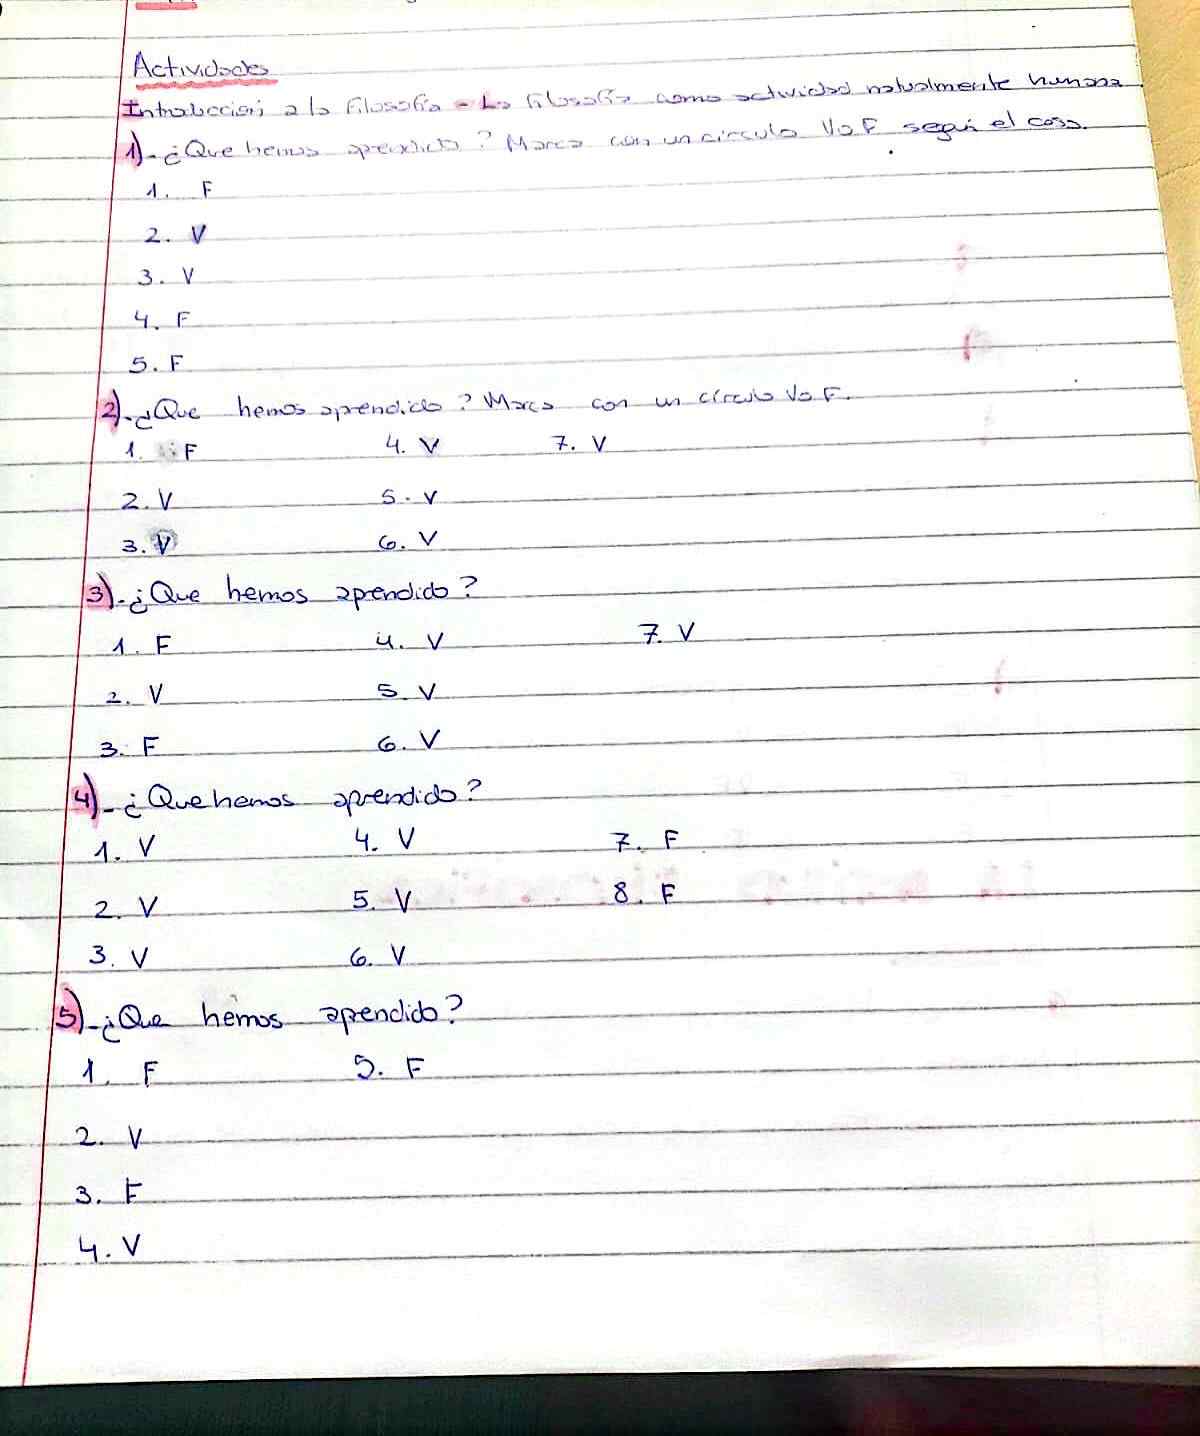 Actividades
Introduccion a la Filosofía - La filosofía como actividad naturalmente humana
1)-¿Que hemos aprendido? Marca con un circulo V o F según el caso.
1. F
2. V
3. V
4. F
5. F
2)-¿Que hemos aprendido? Marca con un círculo V o F.
1. F 4. V 7. V
2. V 5. V
3. V 6. V
3)-¿Que hemos aprendido?
1. F 4. V 7. V
2. V 5. V
3. F 6. V
4)-¿Que hemos aprendido?
1. V 4. V 7. F
2. V 5. V 8. F
3. V 6. V
5)-¿Que hemos aprendido?
1. F 5. F
2. V
3. F
4. V